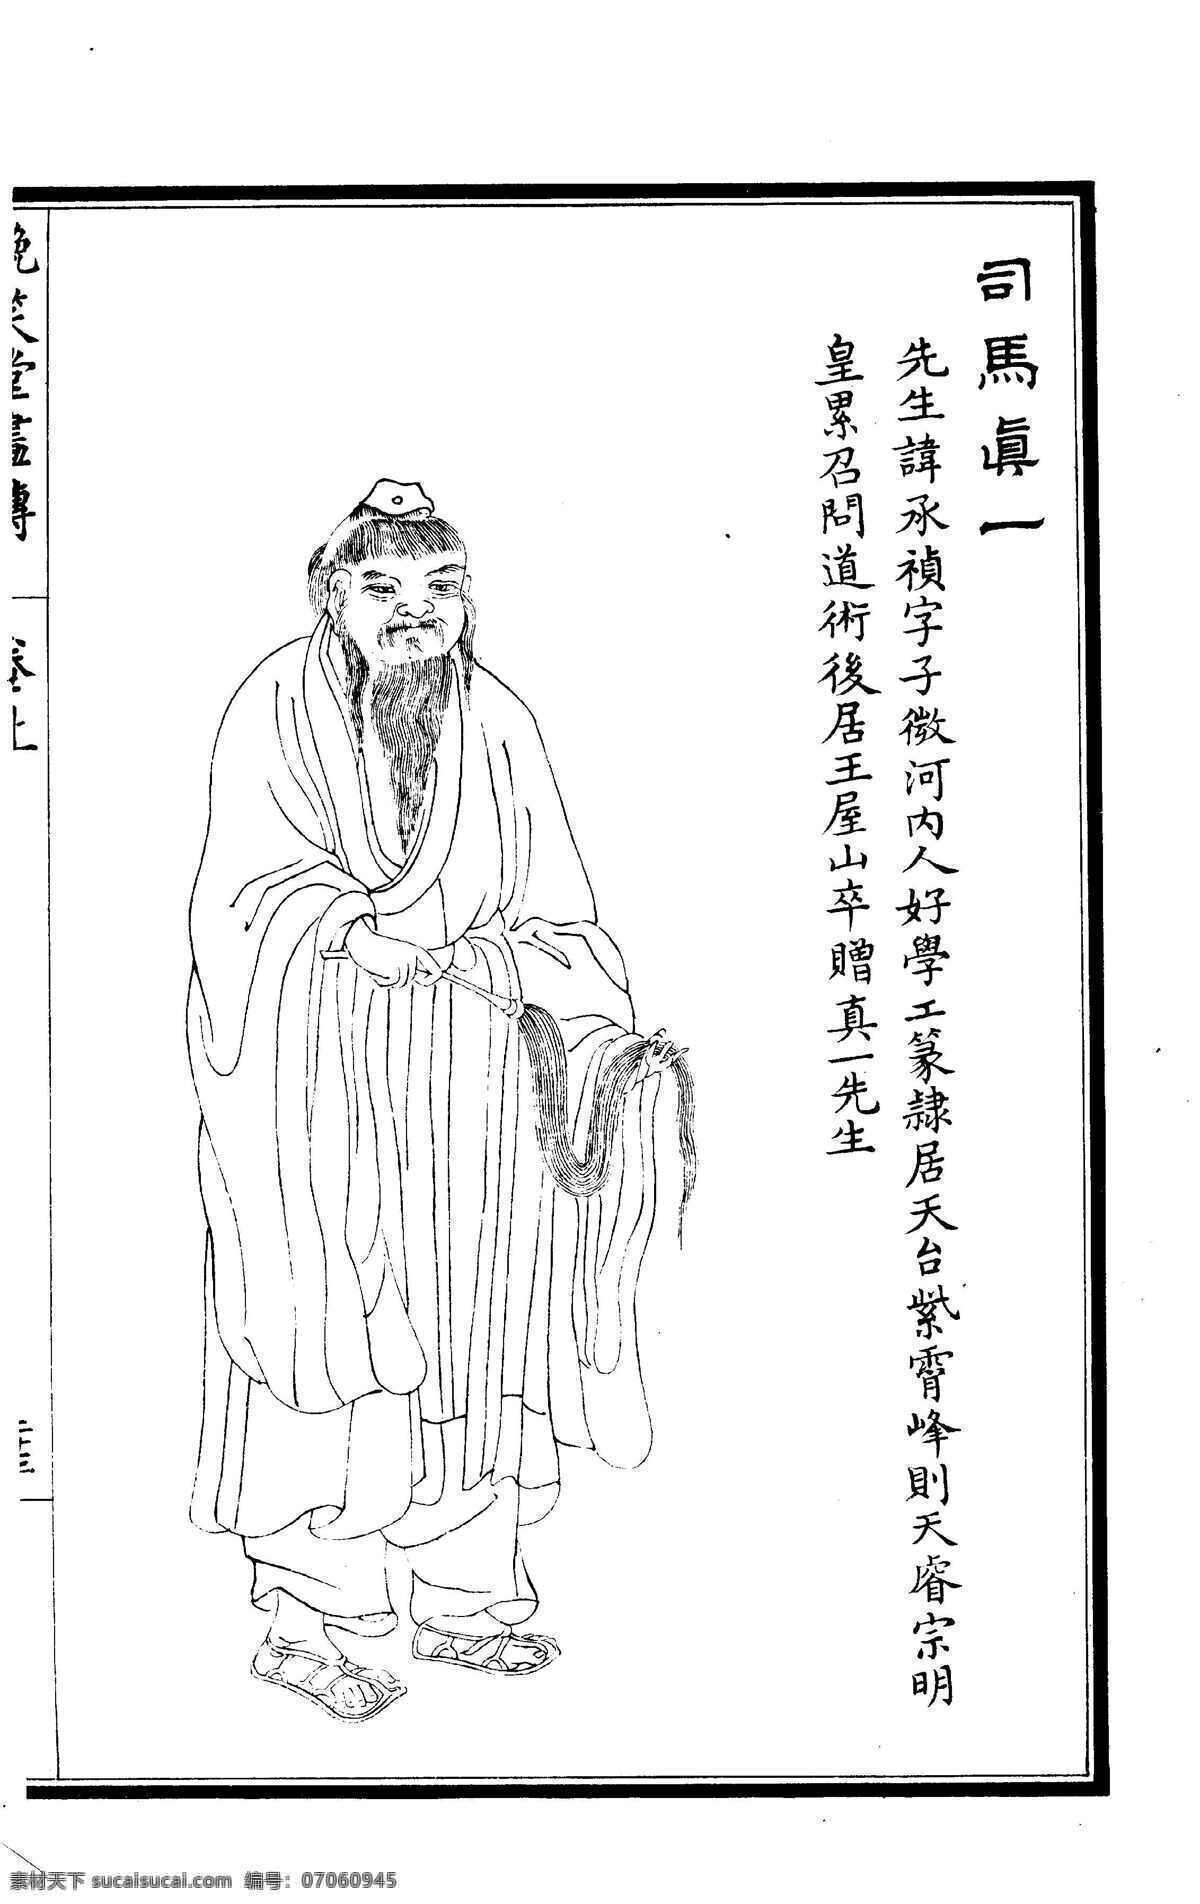 司馬眞一
先生諱承禎字子微河内人好學工篆隷居天台紫霄峰則天睿宗明
皇累召問道術後居王屋山卒贈真一先生
晩笑堂畫傳
卷上
二十三
素材天下 sucaisucai.com 编号：07060945